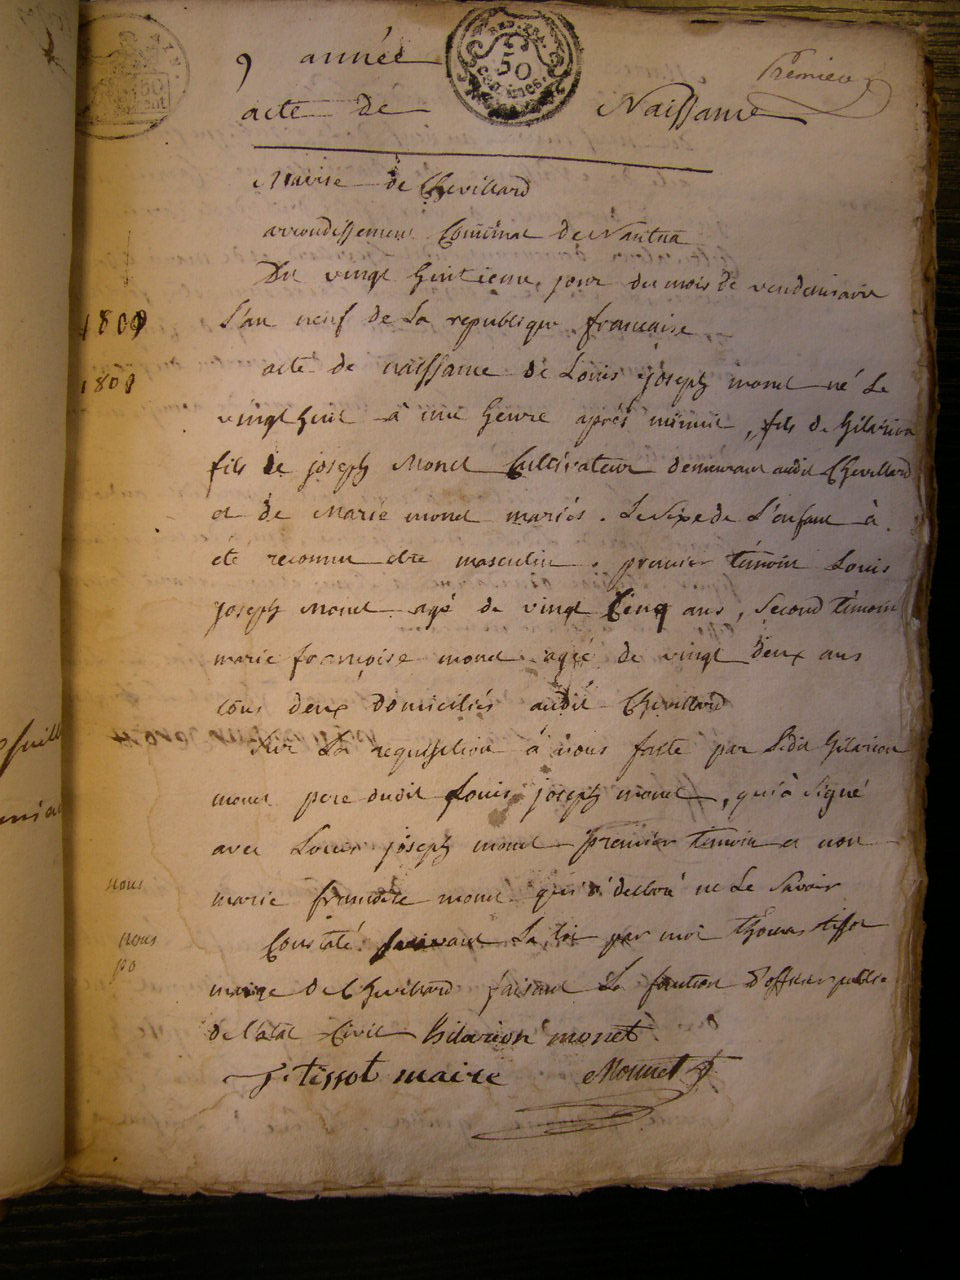 9 année
Premier
acte de Naissance
Mairie de Chevillard
arrondissement Communal de Nantua
Du vingt huitieme jour du mois de vendemiaire
1800
L'an neuf de La republique francaise
1801
acte de naissance de Louis joseph monet né Le
vingt huit à une heure aprés minuit, fils de hilarion
fils de joseph Monet Cultivateur demeurant audit Chevillard
et de Marie monet mariés. Le sexe de L'enfant à
ete reconnu etre masculin. premier témoin Louis
joseph Monet agé de vingt Cinq ans, Second témoin
marie francoise monet agée de vingt deux ans
tous deux domiciliés audit Chevillard
Sur La requisition à nous faite par Ledit hilarion
monet pere dudit Louis joseph monet, qui à Signé
avec Louis joseph monet premier temoin et non
marie francoise monet qui à declaré ne Le Savoir
Constaté Suivant La loi par moi thomas tissot
maire de Chevillard faisant La fonction d'officier public
de l'etat Civil hilarion monet
tissot maire Monnet
50